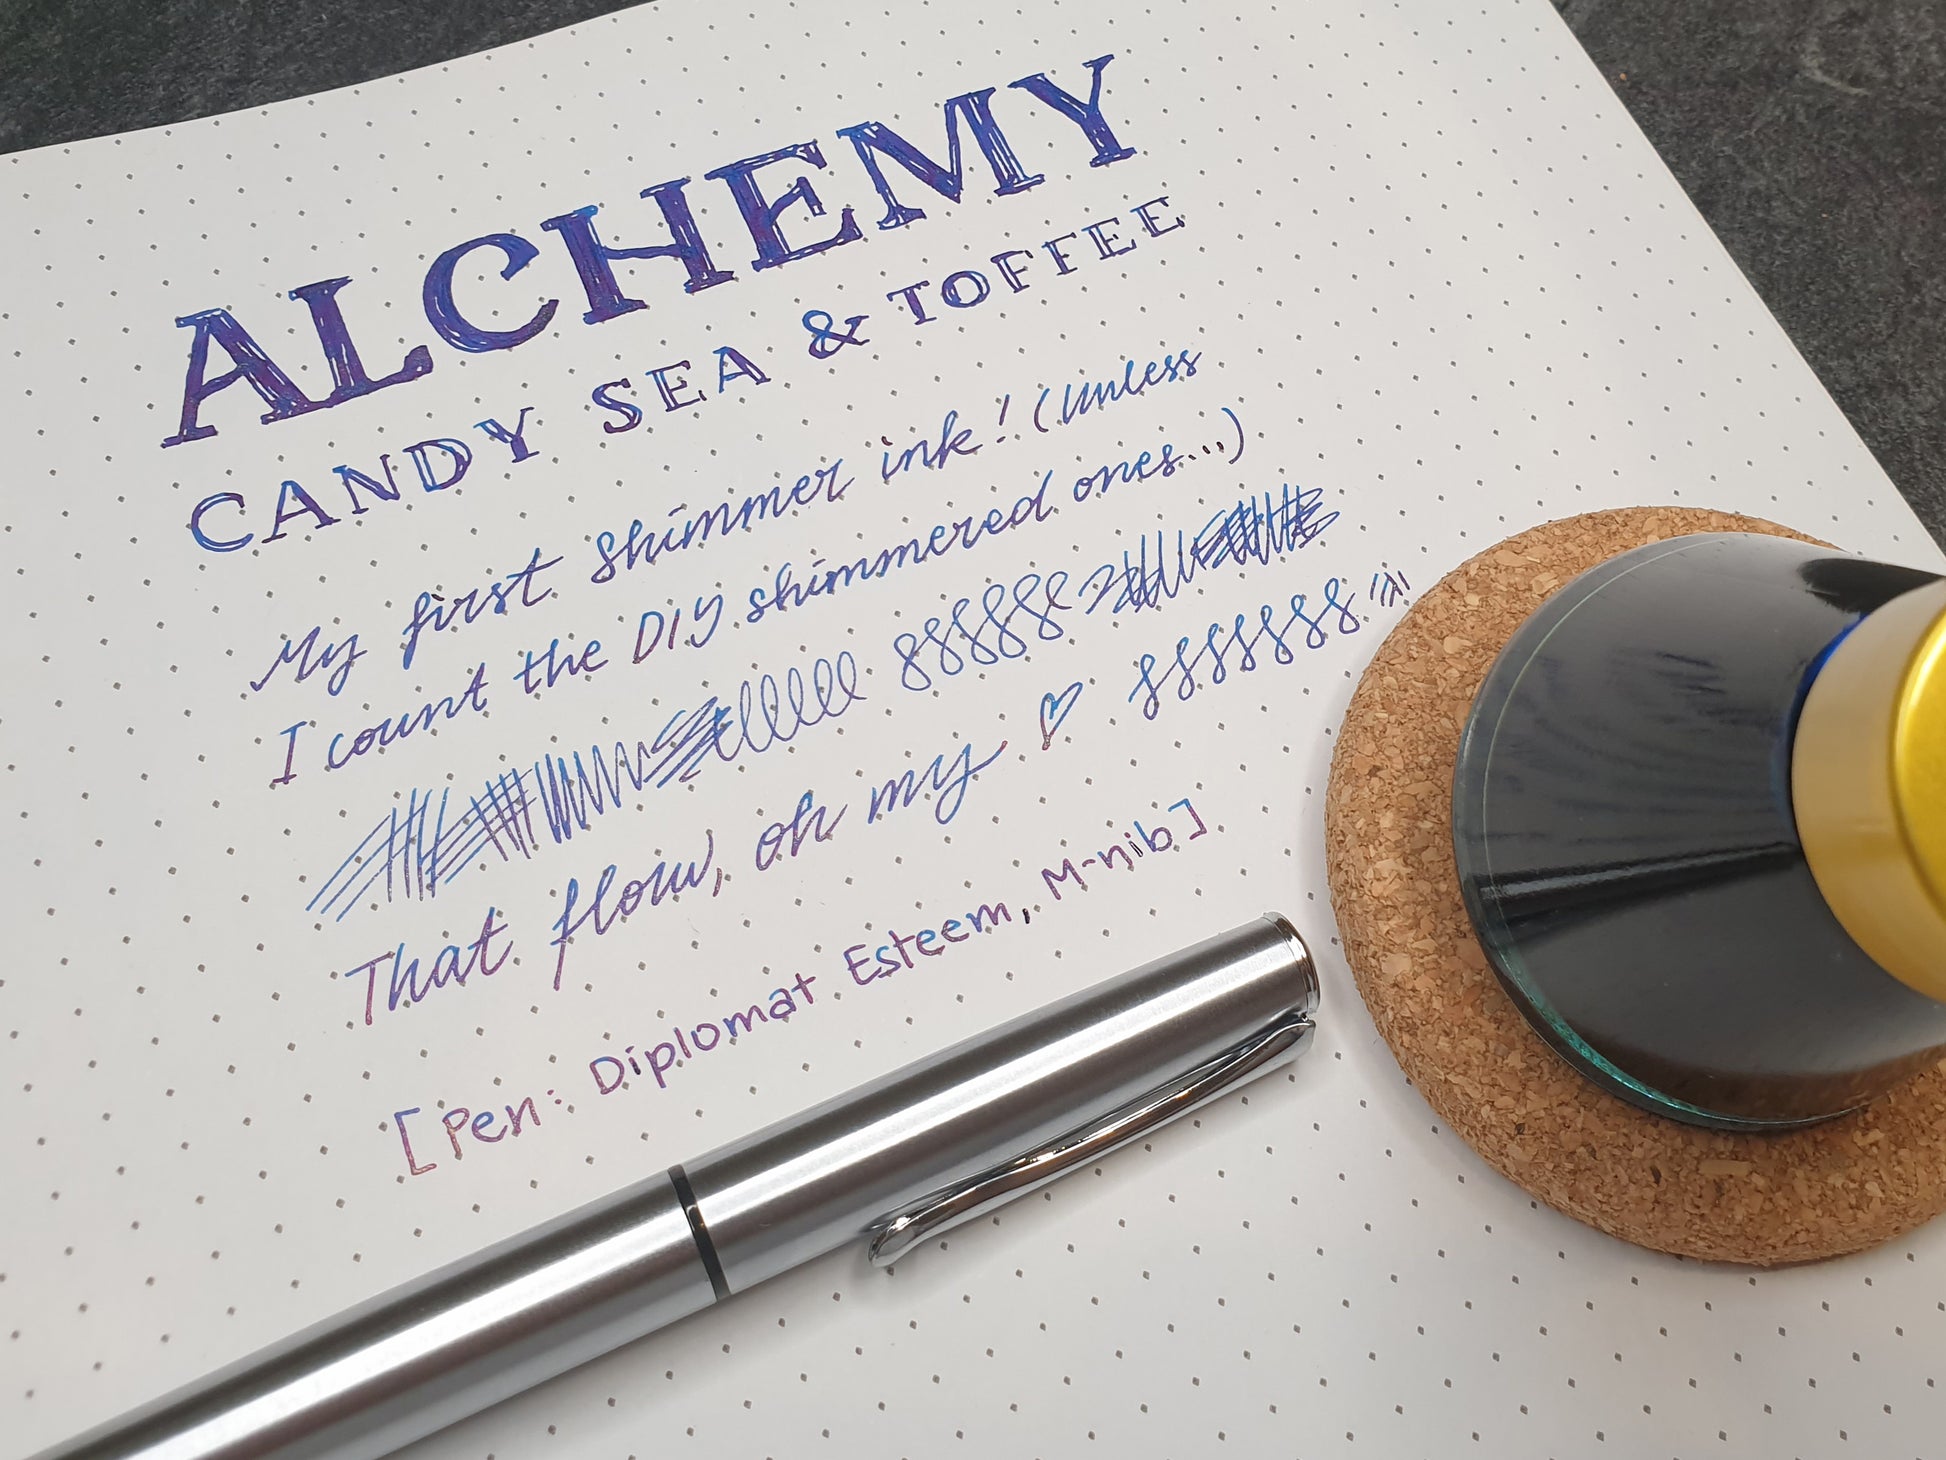 ALCHEMY
CANDY SEA & TOFFEE
My first shimmer ink! (Unless
I count the DIY shimmered ones...)
That flow, oh my ♡
[Pen: Diplomat Esteem, M-nib]